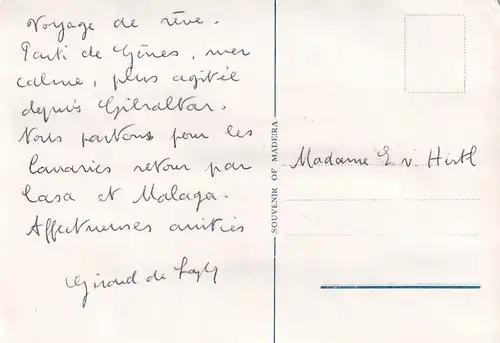 Voyage de rêve.
Parti de Gênes, mer
calme, plus agitée
depuis Gibraltar.
Nous partons pour les
Canaries retour par
Casa et Malaga.
Affectueuses amitiés
Giraud de
SOUVENIR OF MADEIRA
Madame E v. Hirtl